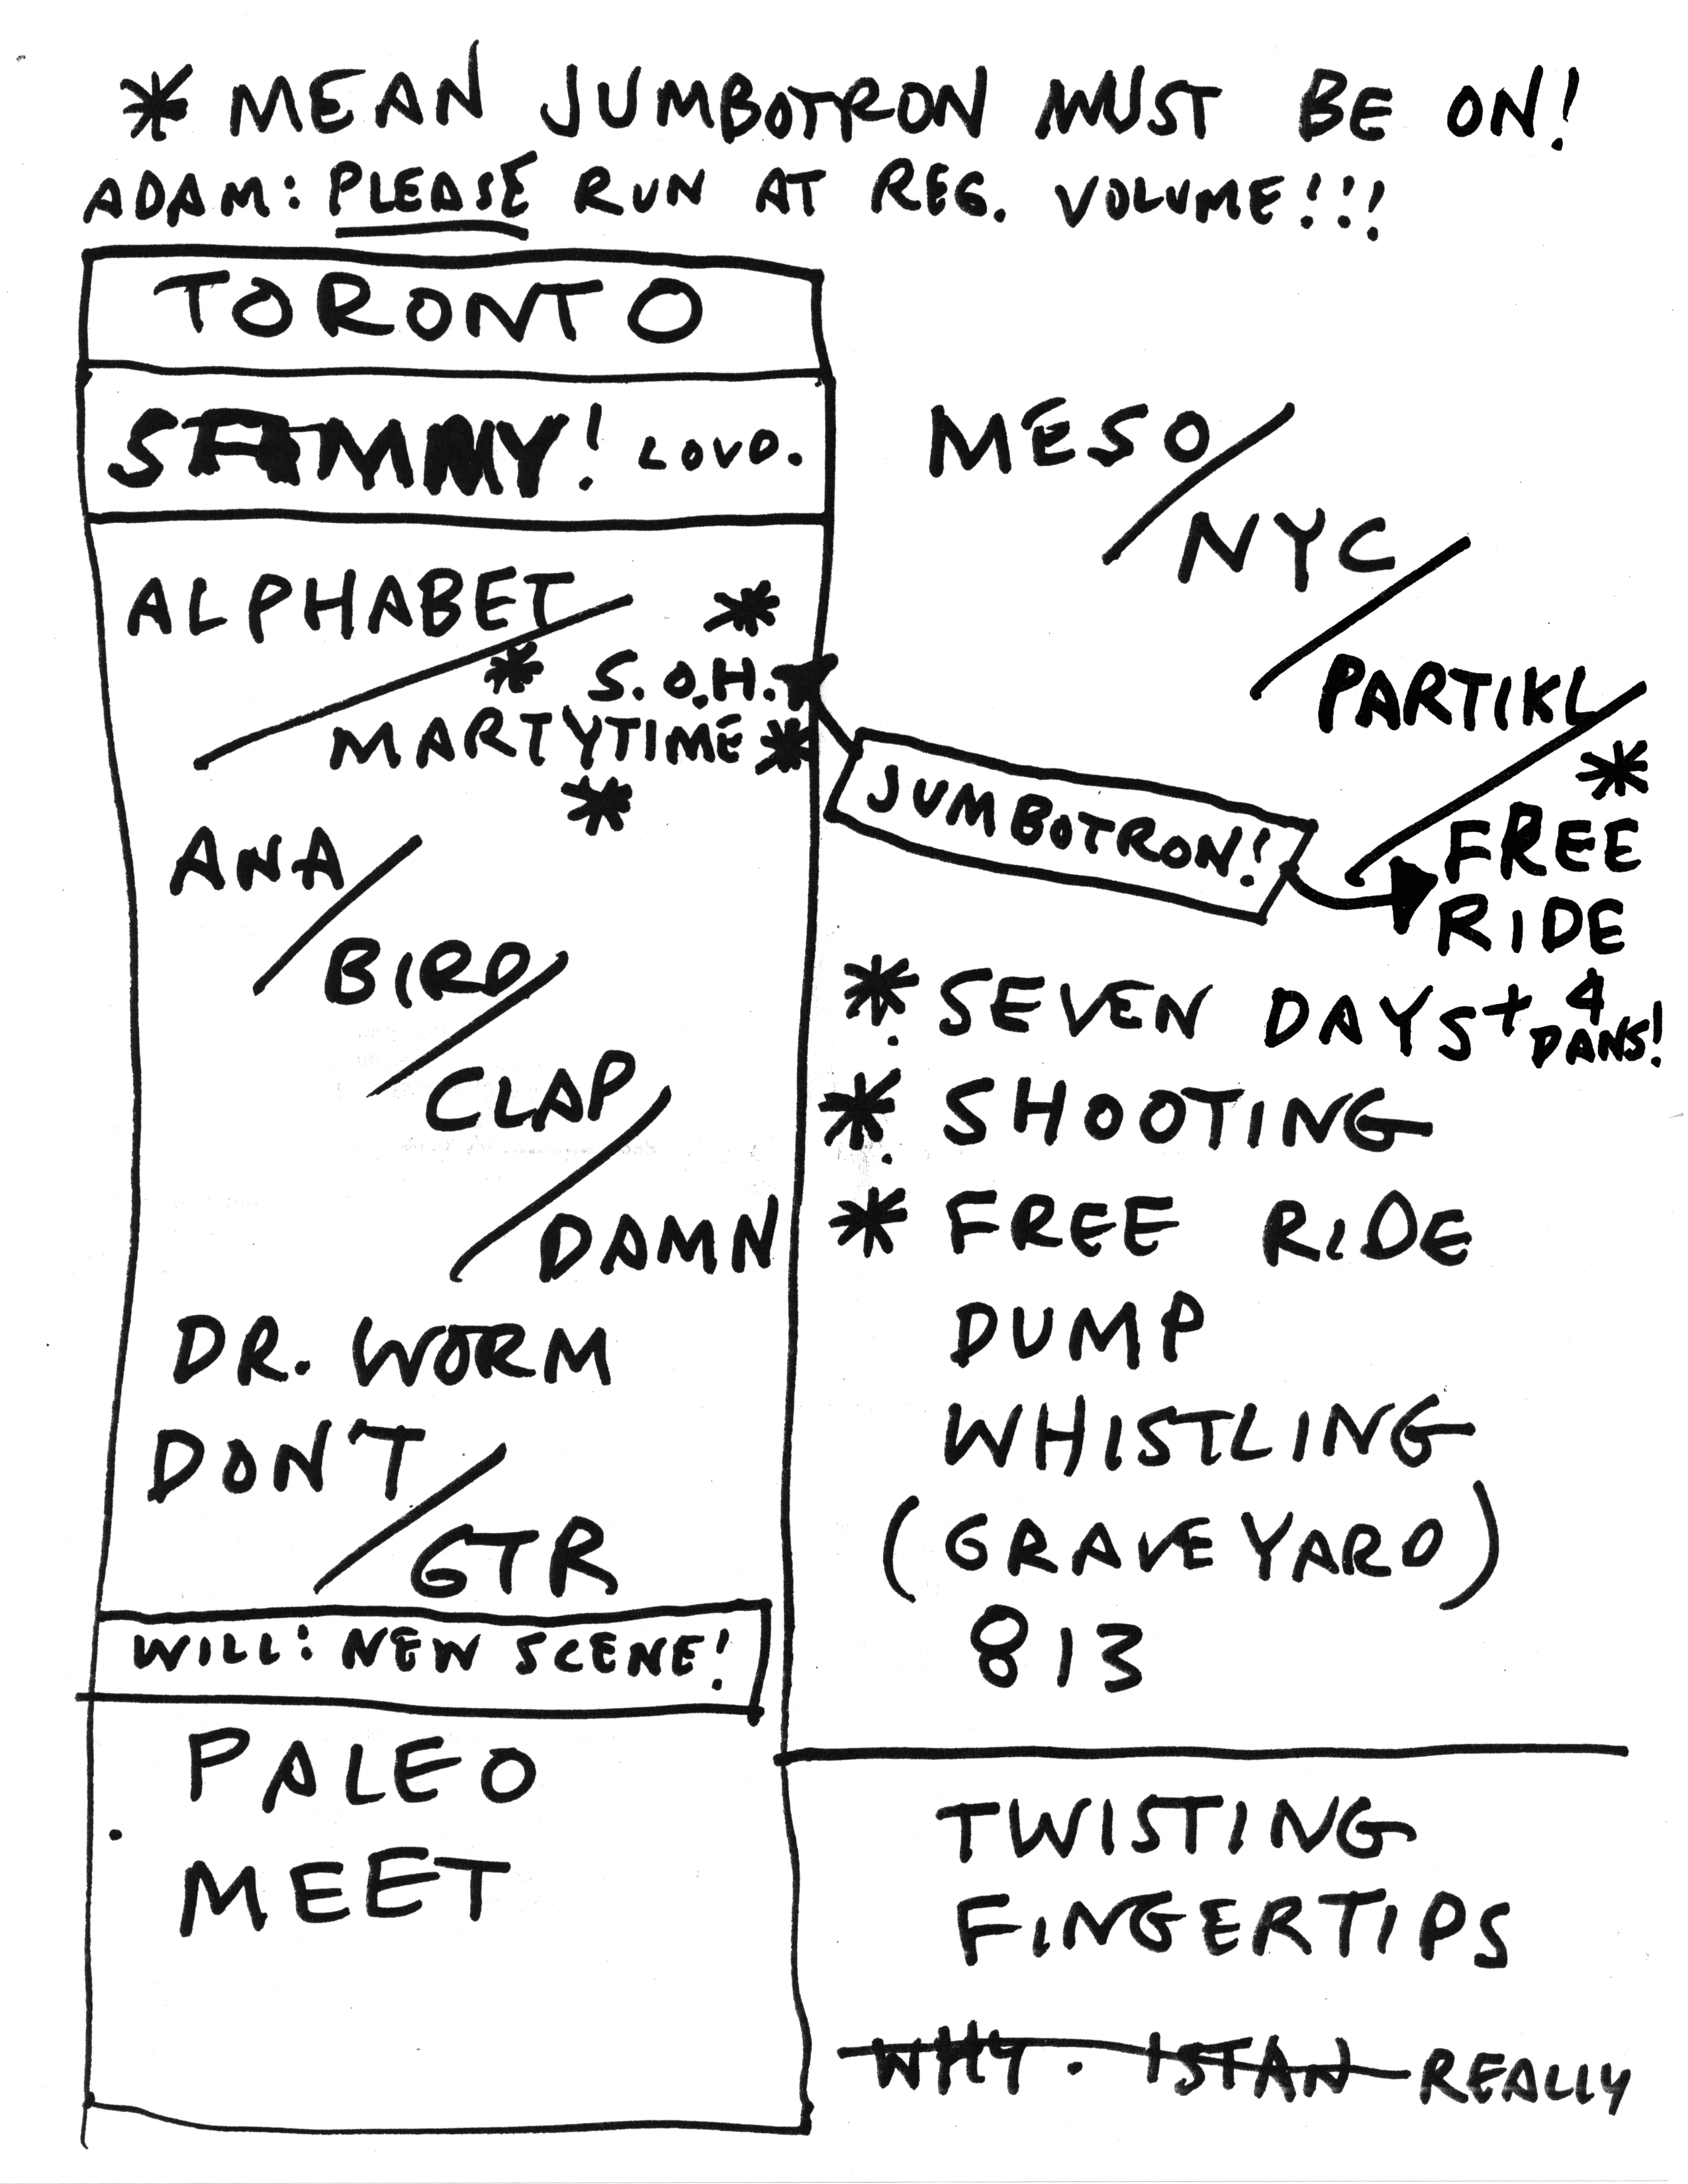 * MEAN JUMBOTRON MUST BE ON!
ADAM: PLEASE RUN AT REG. VOLUME!!!
TORONTO
SAMMY! LOUD.
ALPHABET/
* S.O.H. *
MARTYTIME *
*
ANA/
BIRD/
CLAP/
DAMN
DR. WORM
DON'T/
GTR
WILL: NEW SCENE!
PALEO
MEET
MESO/
NYC/
PARTIKL/
JUMBOTRON!
* FREE
RIDE
* SEVEN DAYS + 4 DANS!
* SHOOTING
* FREE RIDE
DUMP
WHISTLING
(GRAVEYARD)
813
TWISTING
FINGERTIPS
WHY. ISTAN REALLY